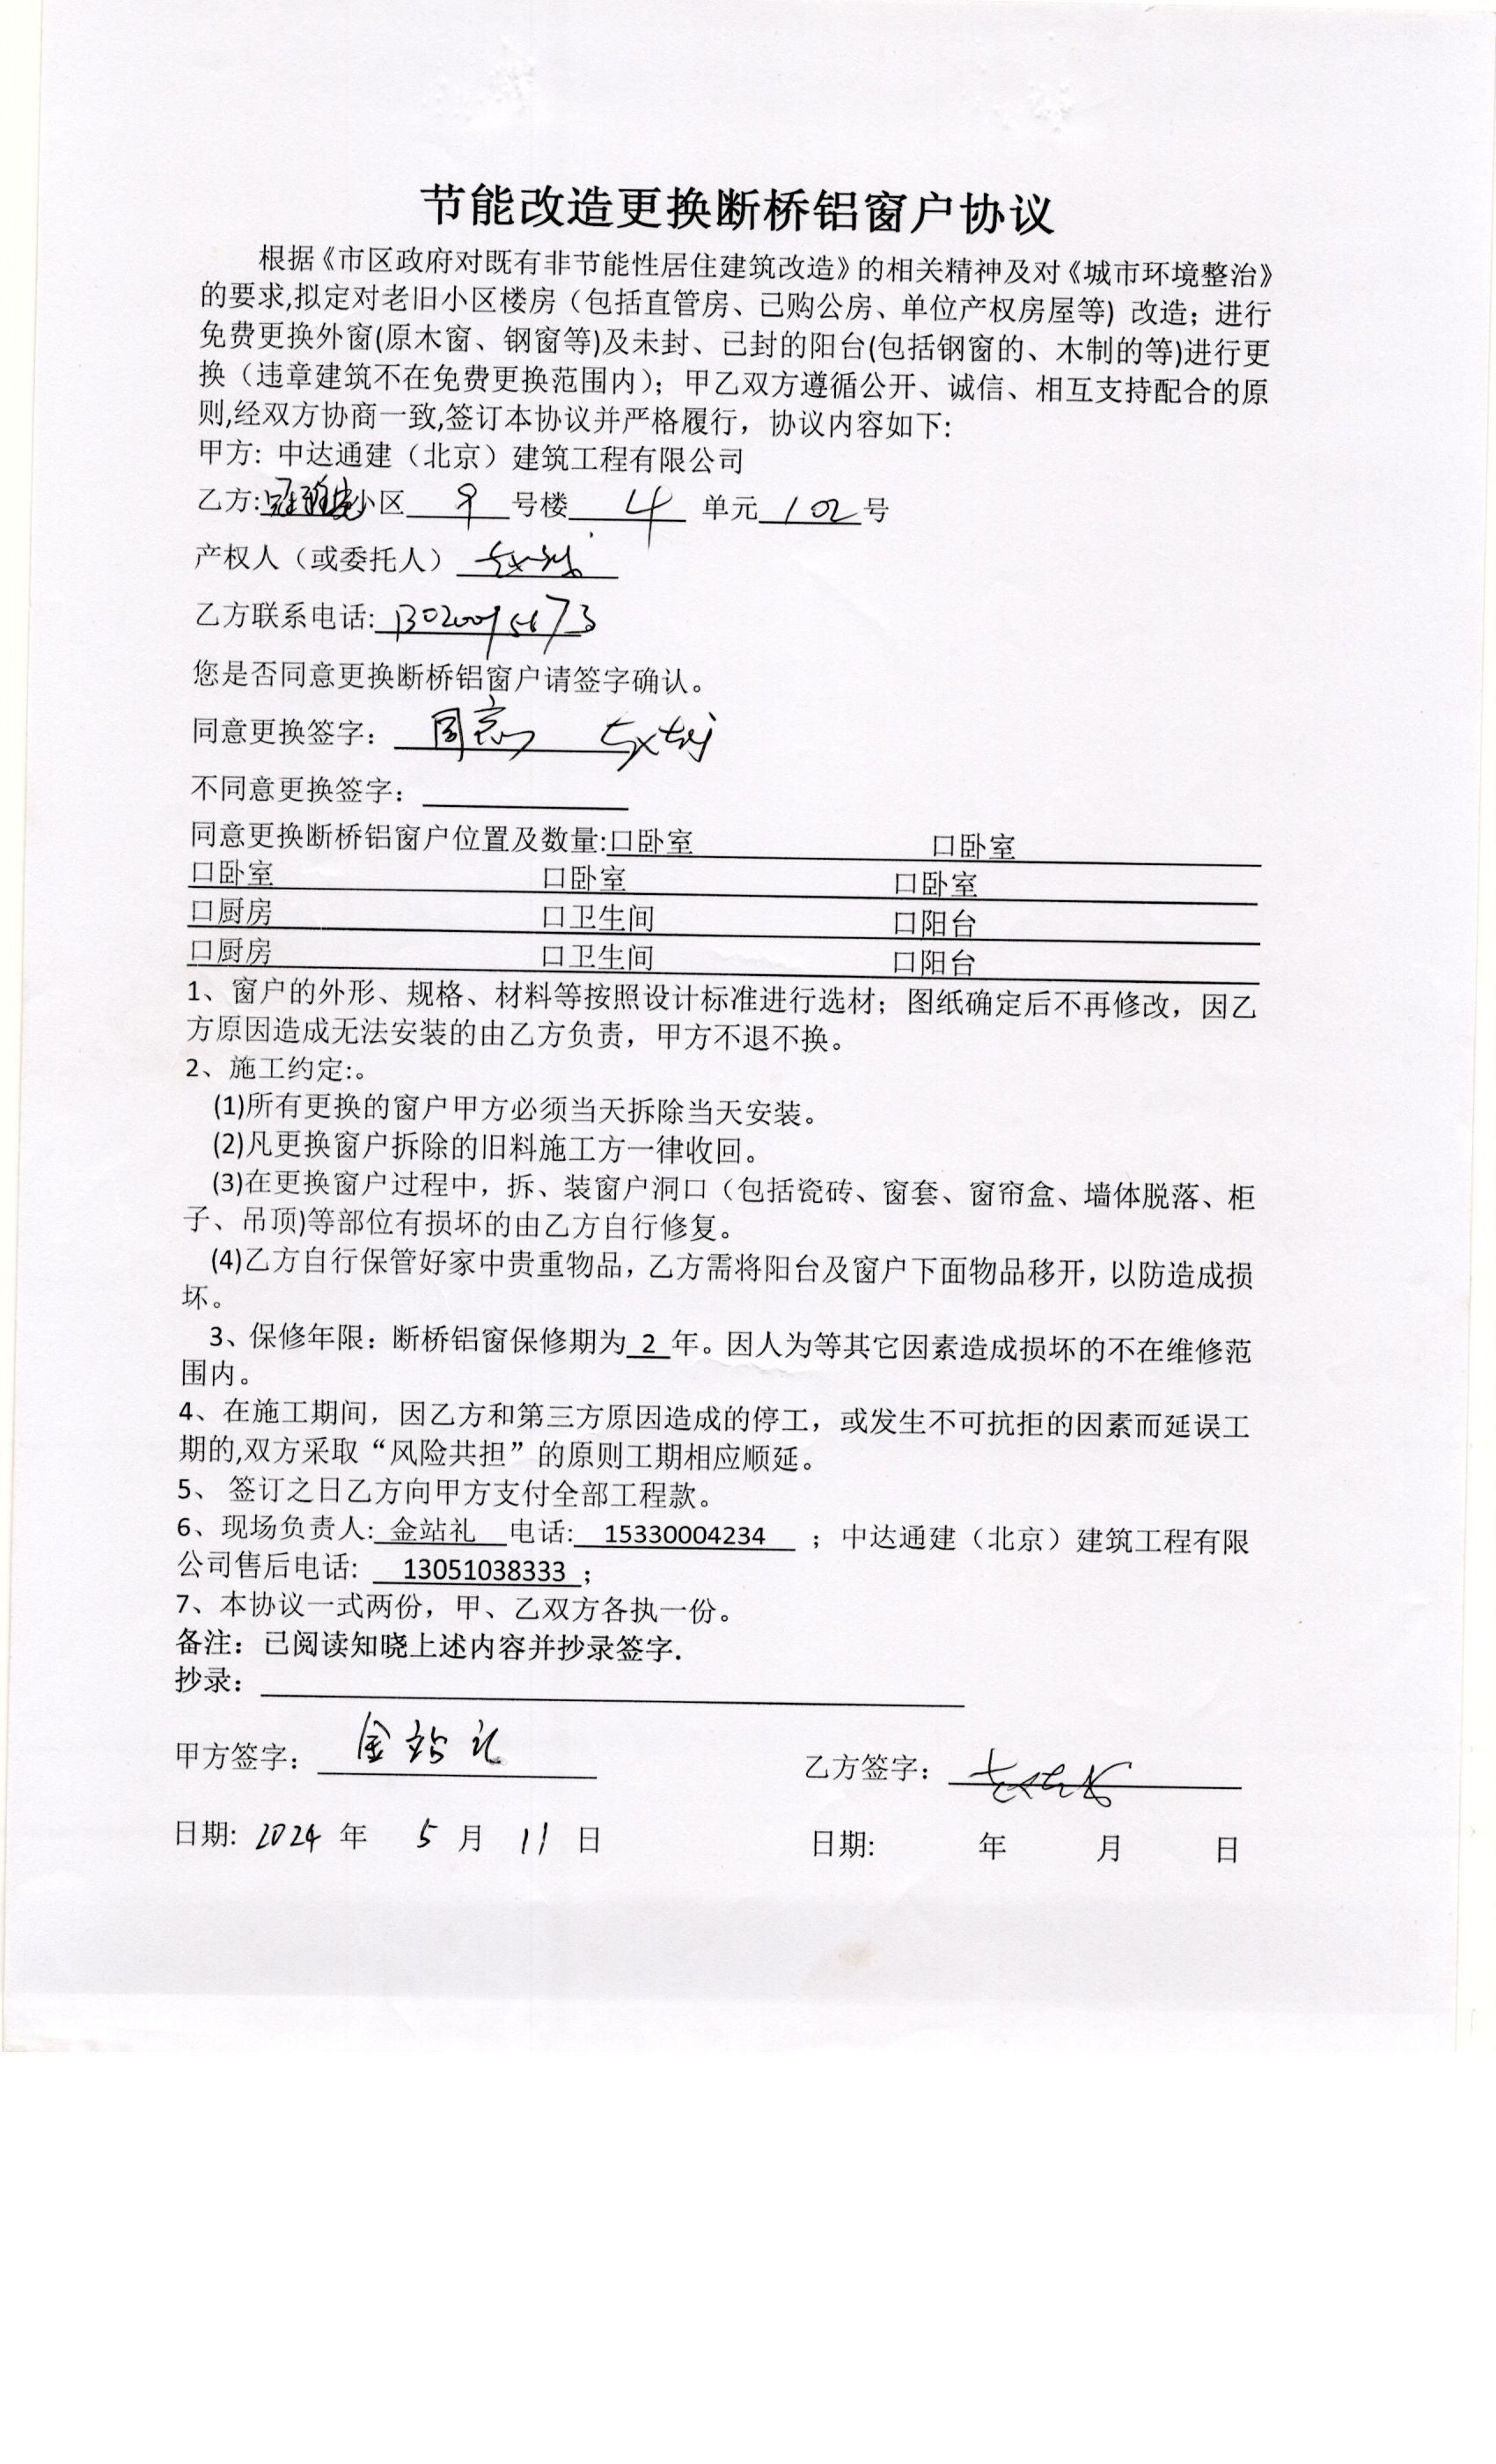 节能改造更换断桥铝窗户协议
根据《市区政府对既有非节能性居住建筑改造》的相关精神及对《城市环境整治》
的要求,拟定对老旧小区楼房（包括直管房、已购公房、单位产权房屋等）改造；进行
免费更换外窗(原木窗、钢窗等)及未封、已封的阳台(包括钢窗的、木制的等)进行更
换（违章建筑不在免费更换范围内）；甲乙双方遵循公开、诚信、相互支持配合的原
则,经双方协商一致,签订本协议并严格履行，协议内容如下：
甲方：中达通建（北京）建筑工程有限公司
乙方: 小区 号楼 4 单元 102 号
产权人（或委托人）
乙方联系电话:
您是否同意更换断桥铝窗户请签字确认。
同意更换签字： 同意
不同意更换签字：
同意更换断桥铝窗户位置及数量:口卧室 口卧室
口卧室 口卧室 口卧室
口厨房 口卫生间 口阳台
口厨房 口卫生间 口阳台
1、窗户的外形、规格、材料等按照设计标准进行选材；图纸确定后不再修改，因乙
方原因造成无法安装的由乙方负责，甲方不退不换。
2、施工约定:。
(1)所有更换的窗户甲方必须当天拆除当天安装。
(2)凡更换窗户拆除的旧料施工方一律收回。
(3)在更换窗户过程中，拆、装窗户洞口（包括瓷砖、窗套、窗帘盒、墙体脱落、柜
子、吊顶)等部位有损坏的由乙方自行修复。
(4)乙方自行保管好家中贵重物品，乙方需将阳台及窗户下面物品移开，以防造成损
坏。
3、保修年限：断桥铝窗保修期为 2 年。因人为等其它因素造成损坏的不在维修范
围内。
4、在施工期间，因乙方和第三方原因造成的停工，或发生不可抗拒的因素而延误工
期的,双方采取“风险共担”的原则工期相应顺延。
5、 签订之日乙方向甲方支付全部工程款。
6、现场负责人: 金站礼 电话: 15330004234 ；中达通建（北京）建筑工程有限
公司售后电话: 13051038333 ；
7、本协议一式两份，甲、乙双方各执一份。
备注：已阅读知晓上述内容并抄录签字.
抄录：
甲方签字： 金站礼 乙方签字：
日期: 2024 年 5 月 11 日 日期: 年 月 日